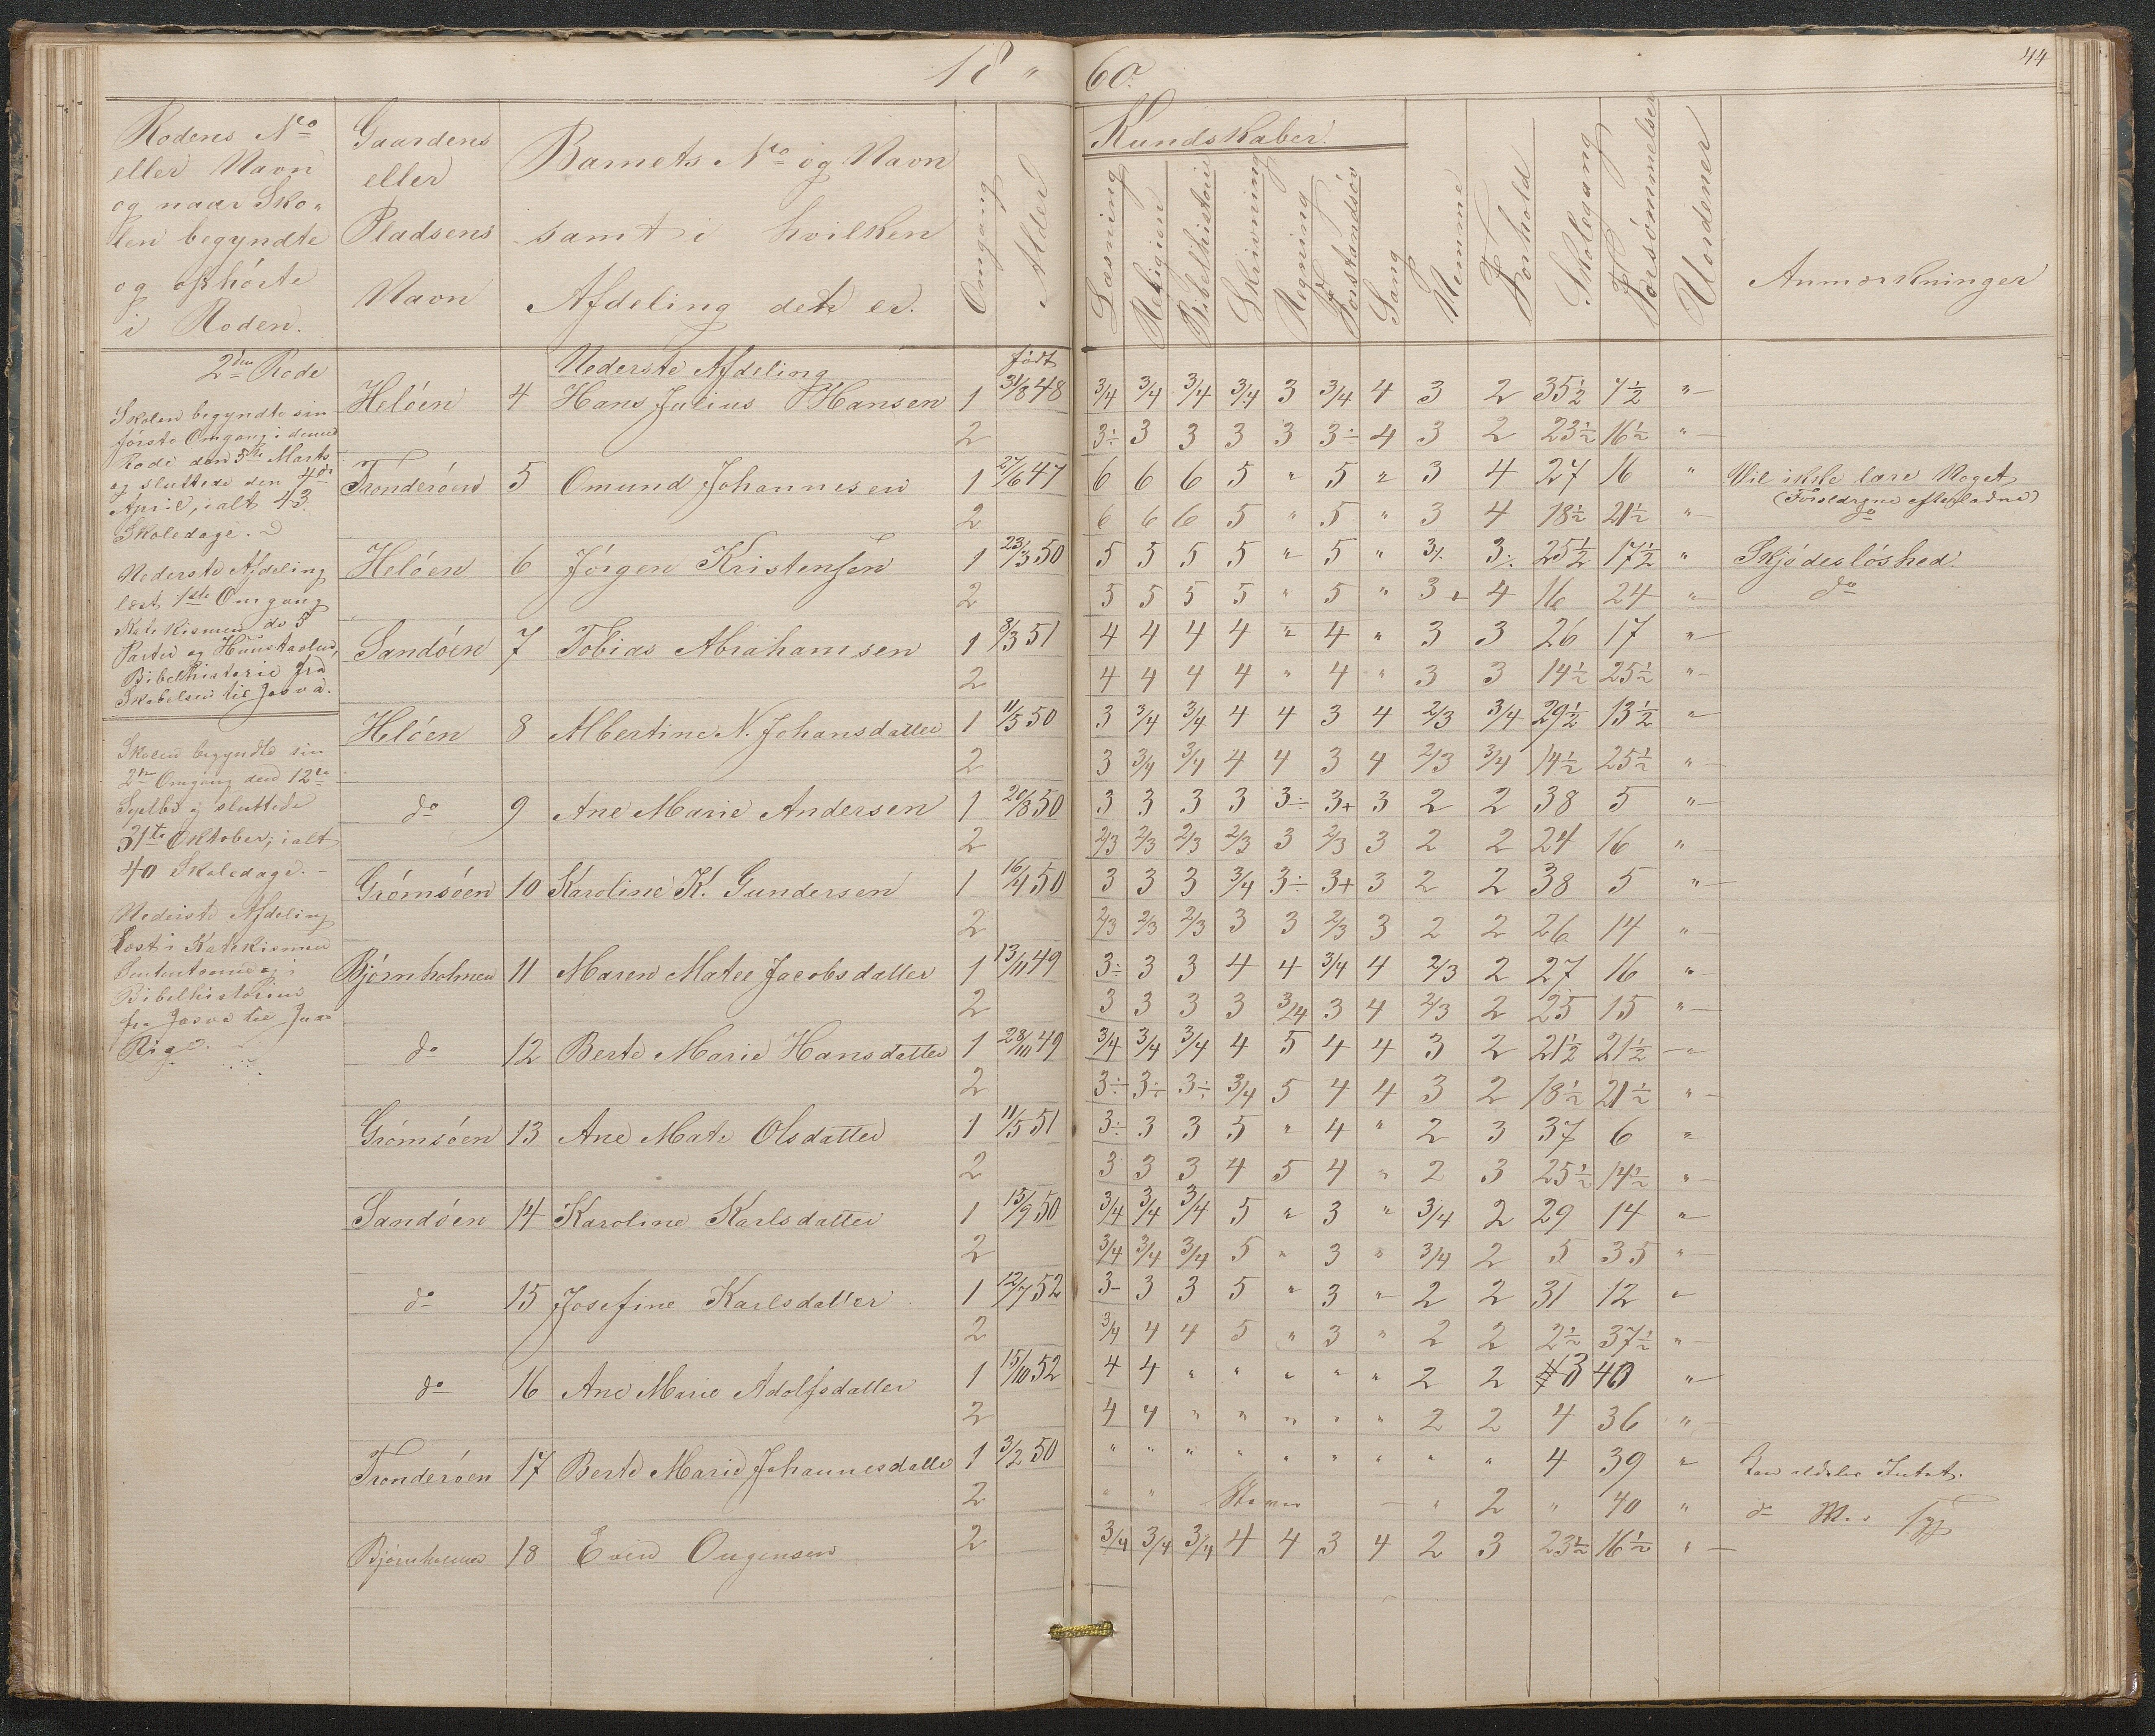 18 " 60.
44
Rodens No
eller Navn
og naar Sko"
len begyndte
og ophórte
i Roden.
Gaardens
eller
Pladsens
Navn
Barnets No og Navn
samt i hvilken
Afdeling det er.
Omgang
Alder
Kundskaber.
Læsning
Religion
Bibelhistorie
Skrivning
Regning
Forstandsöv
Sang
Nemme
Forhold
Skolegang
Forsømmelser
Uordener
Anmærkninger
2den Rode
Skolen begyndte sin
förste Omgang i denne
Rode den 5te Marts
og sluttede den 4de
April, ialt 43
Skoledage.
Nederste Afdeling
læst 1ste Omgang
Katekismen de 5
Parter og Huustavlen,
Bibelhistorie fra
Skabelsen til Josva.
Skolen begyndte sin
2den Omgang den 12te
Septbr og sluttede
31te Oktober, ialt
40 Skoledage. -
Nederste Afdeling
læst i Katekismen
Bibelhistorien
fra Josva til
Rige.
Nederste Afdeling
födt
Helöen 4 Hans Julius Hansen 1 31/8 48 3/4 3/4 3/4 3/4 3 3/4 4 3 2 35½ 7½ "
2 3÷ 3 3 3 3 3÷ 4 3 2 23½ 16½ "
Tronderöen 5 Omund Johannesen 1 27/6 47 6 6 6 5 " 5 " 3 4 27 16 " Vil ikke lære Noget
(Forældrene efterladne)
2 6 6 6 5 " 5 " 3 4 18½ 21½ " do
Helöen 6 Jörgen Kristensen 1 23/3 50 5 5 5 5 " 5 " 3÷ 3÷ 25½ 17½ " Skjödeslöshed.
2 5 5 5 5 " 5 " 3+ 4 16 24 " do
Sandöen 7 Tobias Abrahamsen 1 8/3 51 4 4 4 4 " 4 " 3 3 26 17 "
2 4 4 4 4 " 4 " 3 3 14½ 25½ "
Helöen 8 Albertine N. Johansdatter 1 11/5 50 3 3/4 3/4 4 4 3 4 2/3 3/4 29½ 13½ "
2 3 3/4 3/4 4 4 3 4 2/3 3/4 14½ 25½ "
do 9 Ane Marie Andersen 1 20/8 50 3 3 3 3 3÷ 3+ 3 2 2 38 5 "
2 2/3 2/3 2/3 2/3 3 2/3 3 2 2 24 16 "
Grömsöen 10 Karoline K. Gundersen 1 16/4 50 3 3 3 3/4 3÷ 3+ 3 2 2 38 5 "
2 2/3 2/3 2/3 3 3 2/3 3 2 2 26 14 "
Björnholmen 11 Maren Matee Jacobsdatter 1 13/11 49 3÷ 3 3 4 4 3/4 4 2/3 2 27 16 "
2 3 3 3 3 3/4 3 4 2/3 2 25 15 "
do 12 Berte Marie Hansdatter 1 28/10 49 3/4 3/4 3/4 4 5 4 4 3 2 21½ 21½ "
2 3÷ 3÷ 3÷ 3/4 5 4 4 3 2 18½ 21½ "
Grömsöen 13 Ane Mate Olsdatter 1 11/5 51 3÷ 3 3 5 " 4 " 2 3 37 6 "
2 3 3 3 4 5 4 " 2 3 25½ 14½ "
Sandöen 14 Karoline Karlsdatter 1 15/9 50 3/4 3/4 3/4 5 " 3 " 3/4 2 29 14 "
2 3/4 3/4 3/4 5 " 3 " 3/4 2 5 35 "
do 15 Josefine Karlsdatter 1 12/7 52 3- 3 3 5 " 3 " 2 2 31 12 "
2 3/4 4 4 5 " 3 " 2 2 2½ 37½ "
do 16 Ane Marie Adolfsdatter 1 15/10 52 4 4 " " " " " 2 2 3 40 "
2 4 4 " " " " " 2 2 4 36 "
Tronderöen 17 Berte Marie Johannesdatter 1 3/2 50 " " " " " " " " " 4 39 " Kan aldeles Intet.
2 " " " 2 " 40 " do syg
Björnholmen 18 Even 2 3/4 3/4 3/4 4 4 3 4 2 3 23½ 16½ "